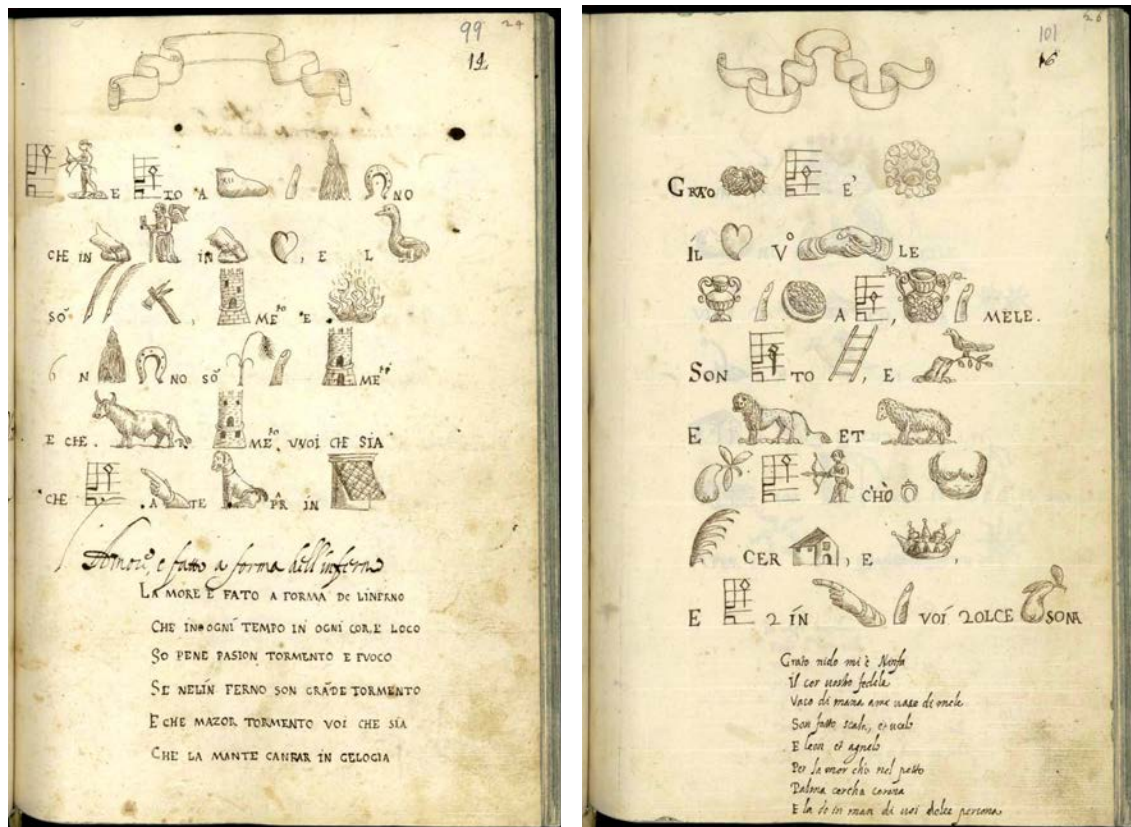 99 24
14
E TO A NO
CHE IN IN , E L
SÕ , ME^TO E
N NO SÕ ME
E CHE . ME^TO VVOI CHE SIA
CHE . A TE PR IN
Amor, e fatto a forma dell'inferno
LA MORE E FATO A FORMA DE LINFERNO
CHE IN OGNI TEMPO IN OGNI COR.E LOCO
SO PENE PASION TORMENTO E FUOCO
SE NELIN FERNO SON GRÃDE TORMENTO
E CHE MAZOR TORMENTO VOI CHE SIA
CHE LA MANTE CANPAR IN GELOGIA
26
101
16
GRAO E'
IL V° LE
A , MELE.
SON TO , E
E ET
C'HÒ
CER , E ,
E 2 IN VOI 2OLCE SONA
Grato nido mi è Ninfa
Il cor vostro fedele
Vaso di mana a me vaso di mele
Son fatto scala, et ucelo
E leon et agnelo
Per la mor ch'o nel petto
Palma cercha corona
E la fe in man di voi dolce persona